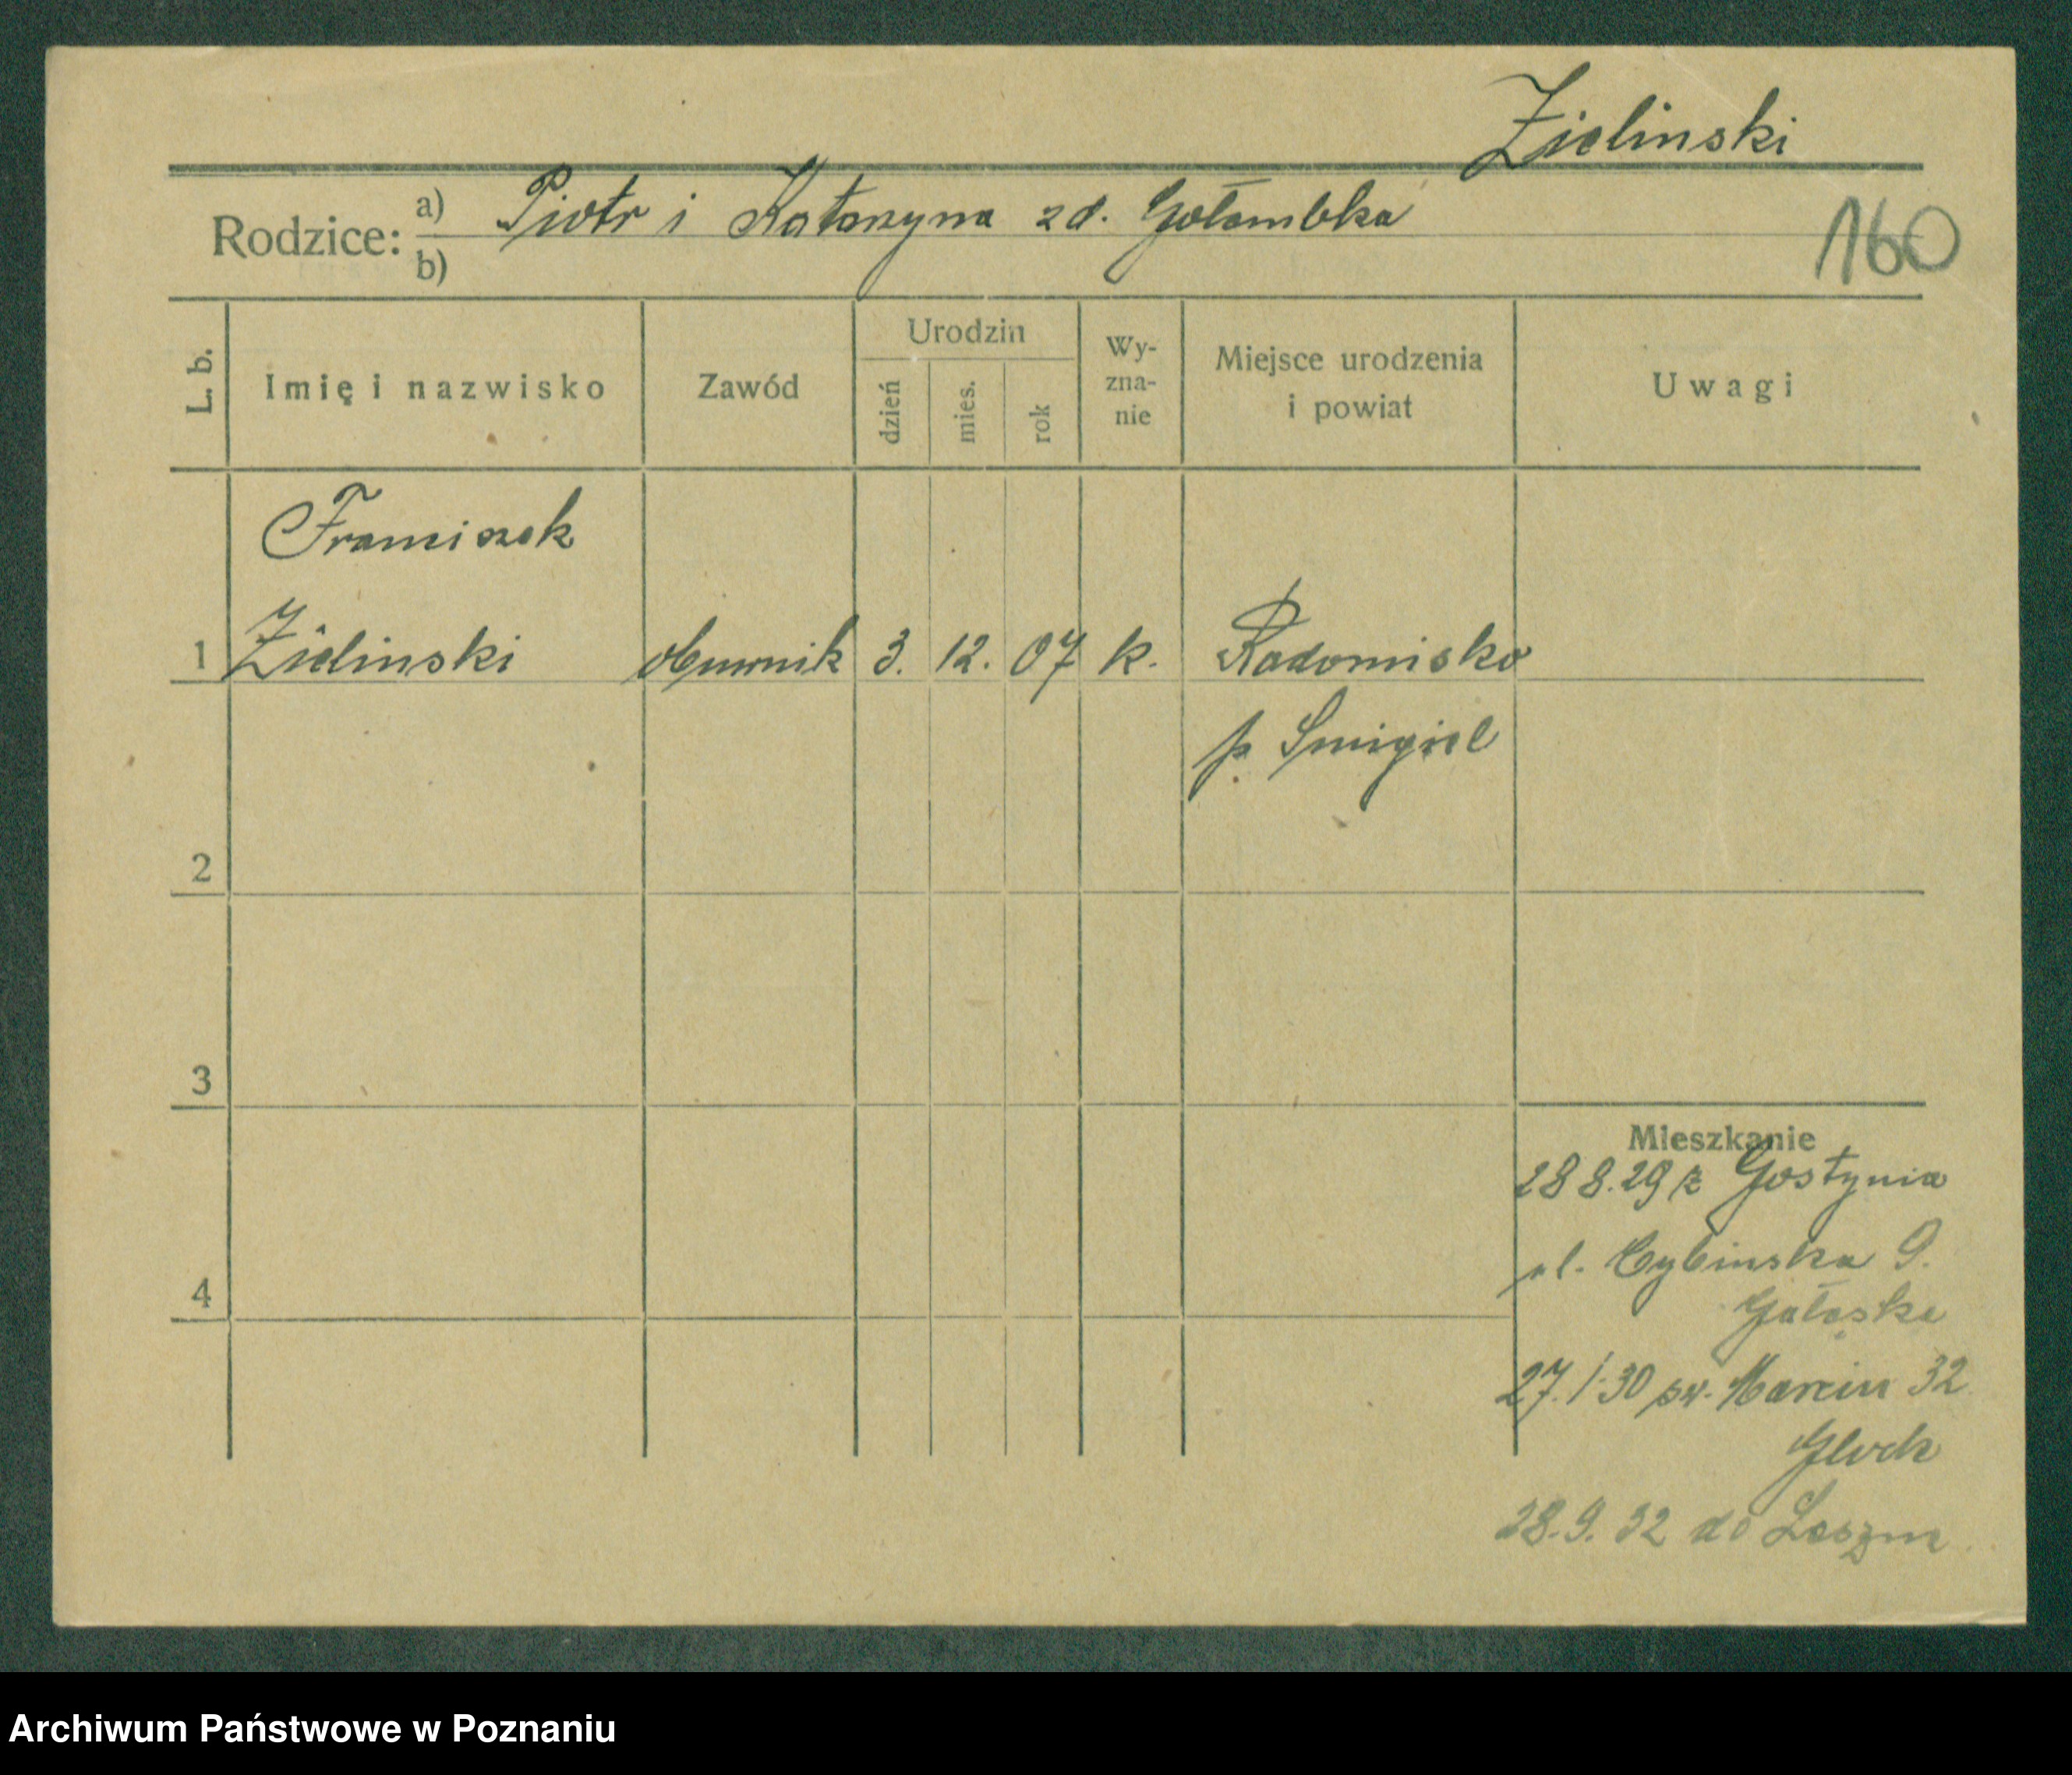 Zielinski
Rodzice: a) Piotr i Katarzyna zd. Gołambka
b)
160
L. b.
Imię i nazwisko
Zawód
Urodzin
dzień
mies.
rok
Wy-
zna-
nie
Miejsce urodzenia
i powiat
Uwagi
Franciszek
1 Zielinski obuwnik 3. 12. 07 k. Radomisko
p Smigiel
2
3
4
Mieszkanie
28 8.29 z Gostynia
ul. Cybinska 9.
27.1.30 św. Marcin 32
28.9.32 do Leszna
Archiwum Państwowe w Poznaniu